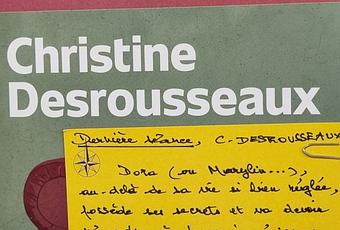 Christine
Desrousseaux
Dernière séance, C. DESROUSSEAUX
Dora (ou Marylin...),
au-delà de sa vie si bien réglée,
possède ses secrets et va devoir